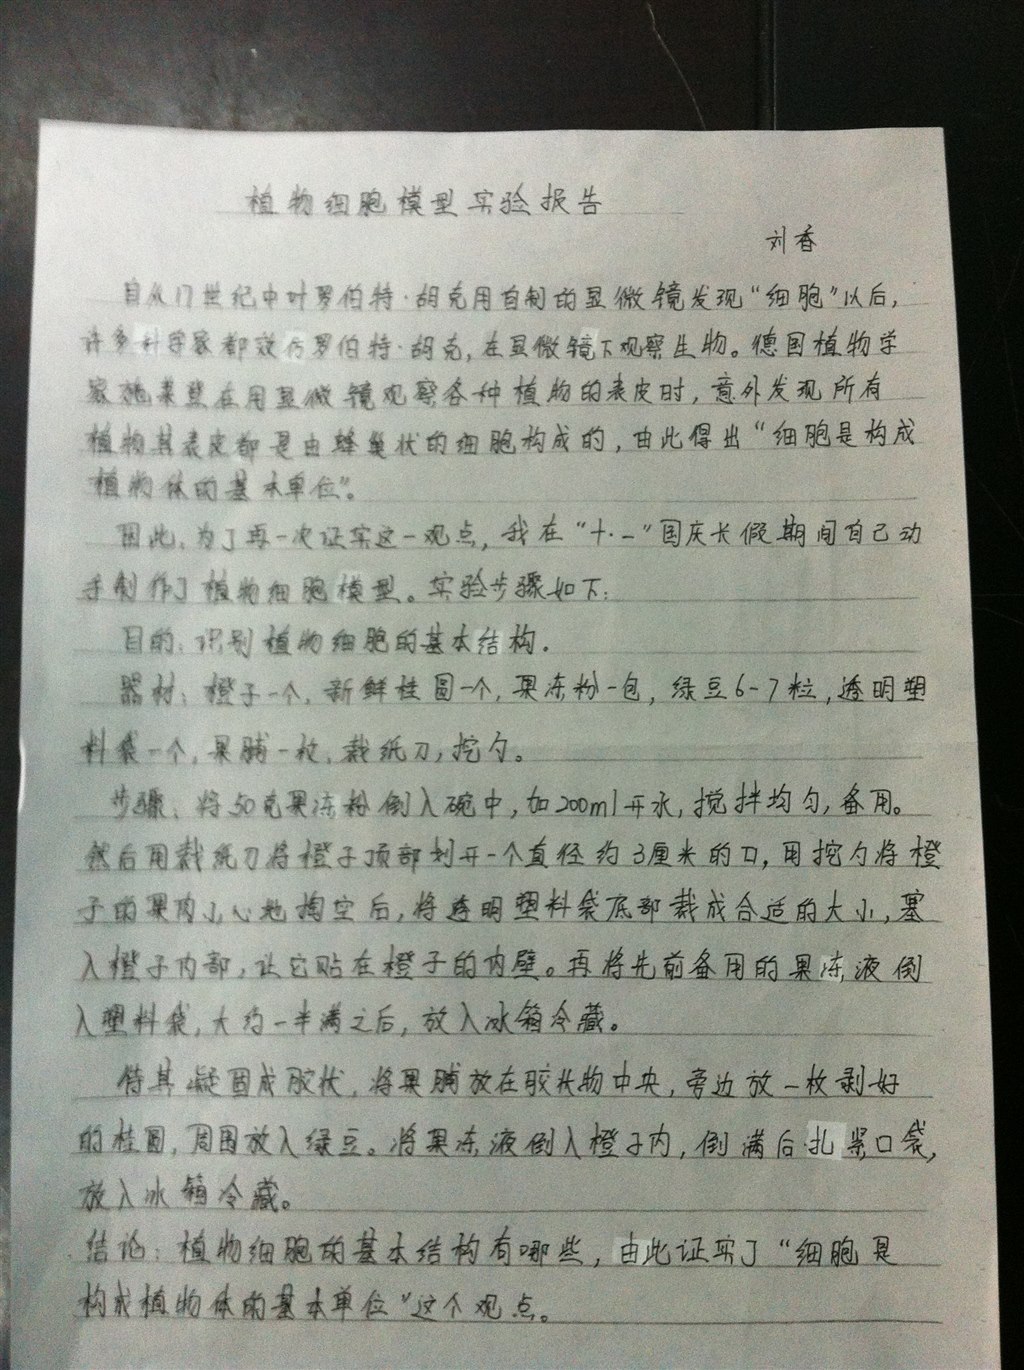 植物细胞模型实验报告
刘香
自从17世纪中叶罗伯特·胡克用自制的显微镜发现“细胞”以后,
许多科学家都效仿罗伯特·胡克,在显微镜下观察生物。德国植物学
家施莱登在用显微镜观察各种植物的表皮时,意外发现所有
植物其表皮都是由蜂巢状的细胞构成的,由此得出“细胞是构成
植物体的基本单位”。
因此,为了再一次证实这一观点,我在“十·一”国庆长假期间自己动
手制作了植物细胞模型。实验步骤如下:
目的:识别植物细胞的基本结构.
器材:橙子一个,新鲜桂圆一个,果冻粉一包,绿豆6-7粒,透明塑
料袋一个,果脯一枚,裁纸刀,挖勺。
步骤:将50克果冻粉倒入碗中,加200ml开水,搅拌均匀,备用。
然后用裁纸刀将橙子顶部划开一个直径约3厘米的口,用挖勺将橙
子的果肉小心地掏空后,将透明塑料袋底部裁成合适的大小,塞
入橙子内部,让它贴在橙子的内壁。再将先前备用的果冻液倒
入塑料袋,大约一半满之后,放入冰箱冷藏。
待其凝固成胶状,将果脯放在胶状物中央,旁边放一枚剥好
的桂圆,周围放入绿豆。将果冻液倒入橙子内,倒满后扎紧口袋,
放入冰箱冷藏。
结论:植物细胞的基本结构有哪些,由此证实了“细胞是
构成植物体的基本单位”这个观点。